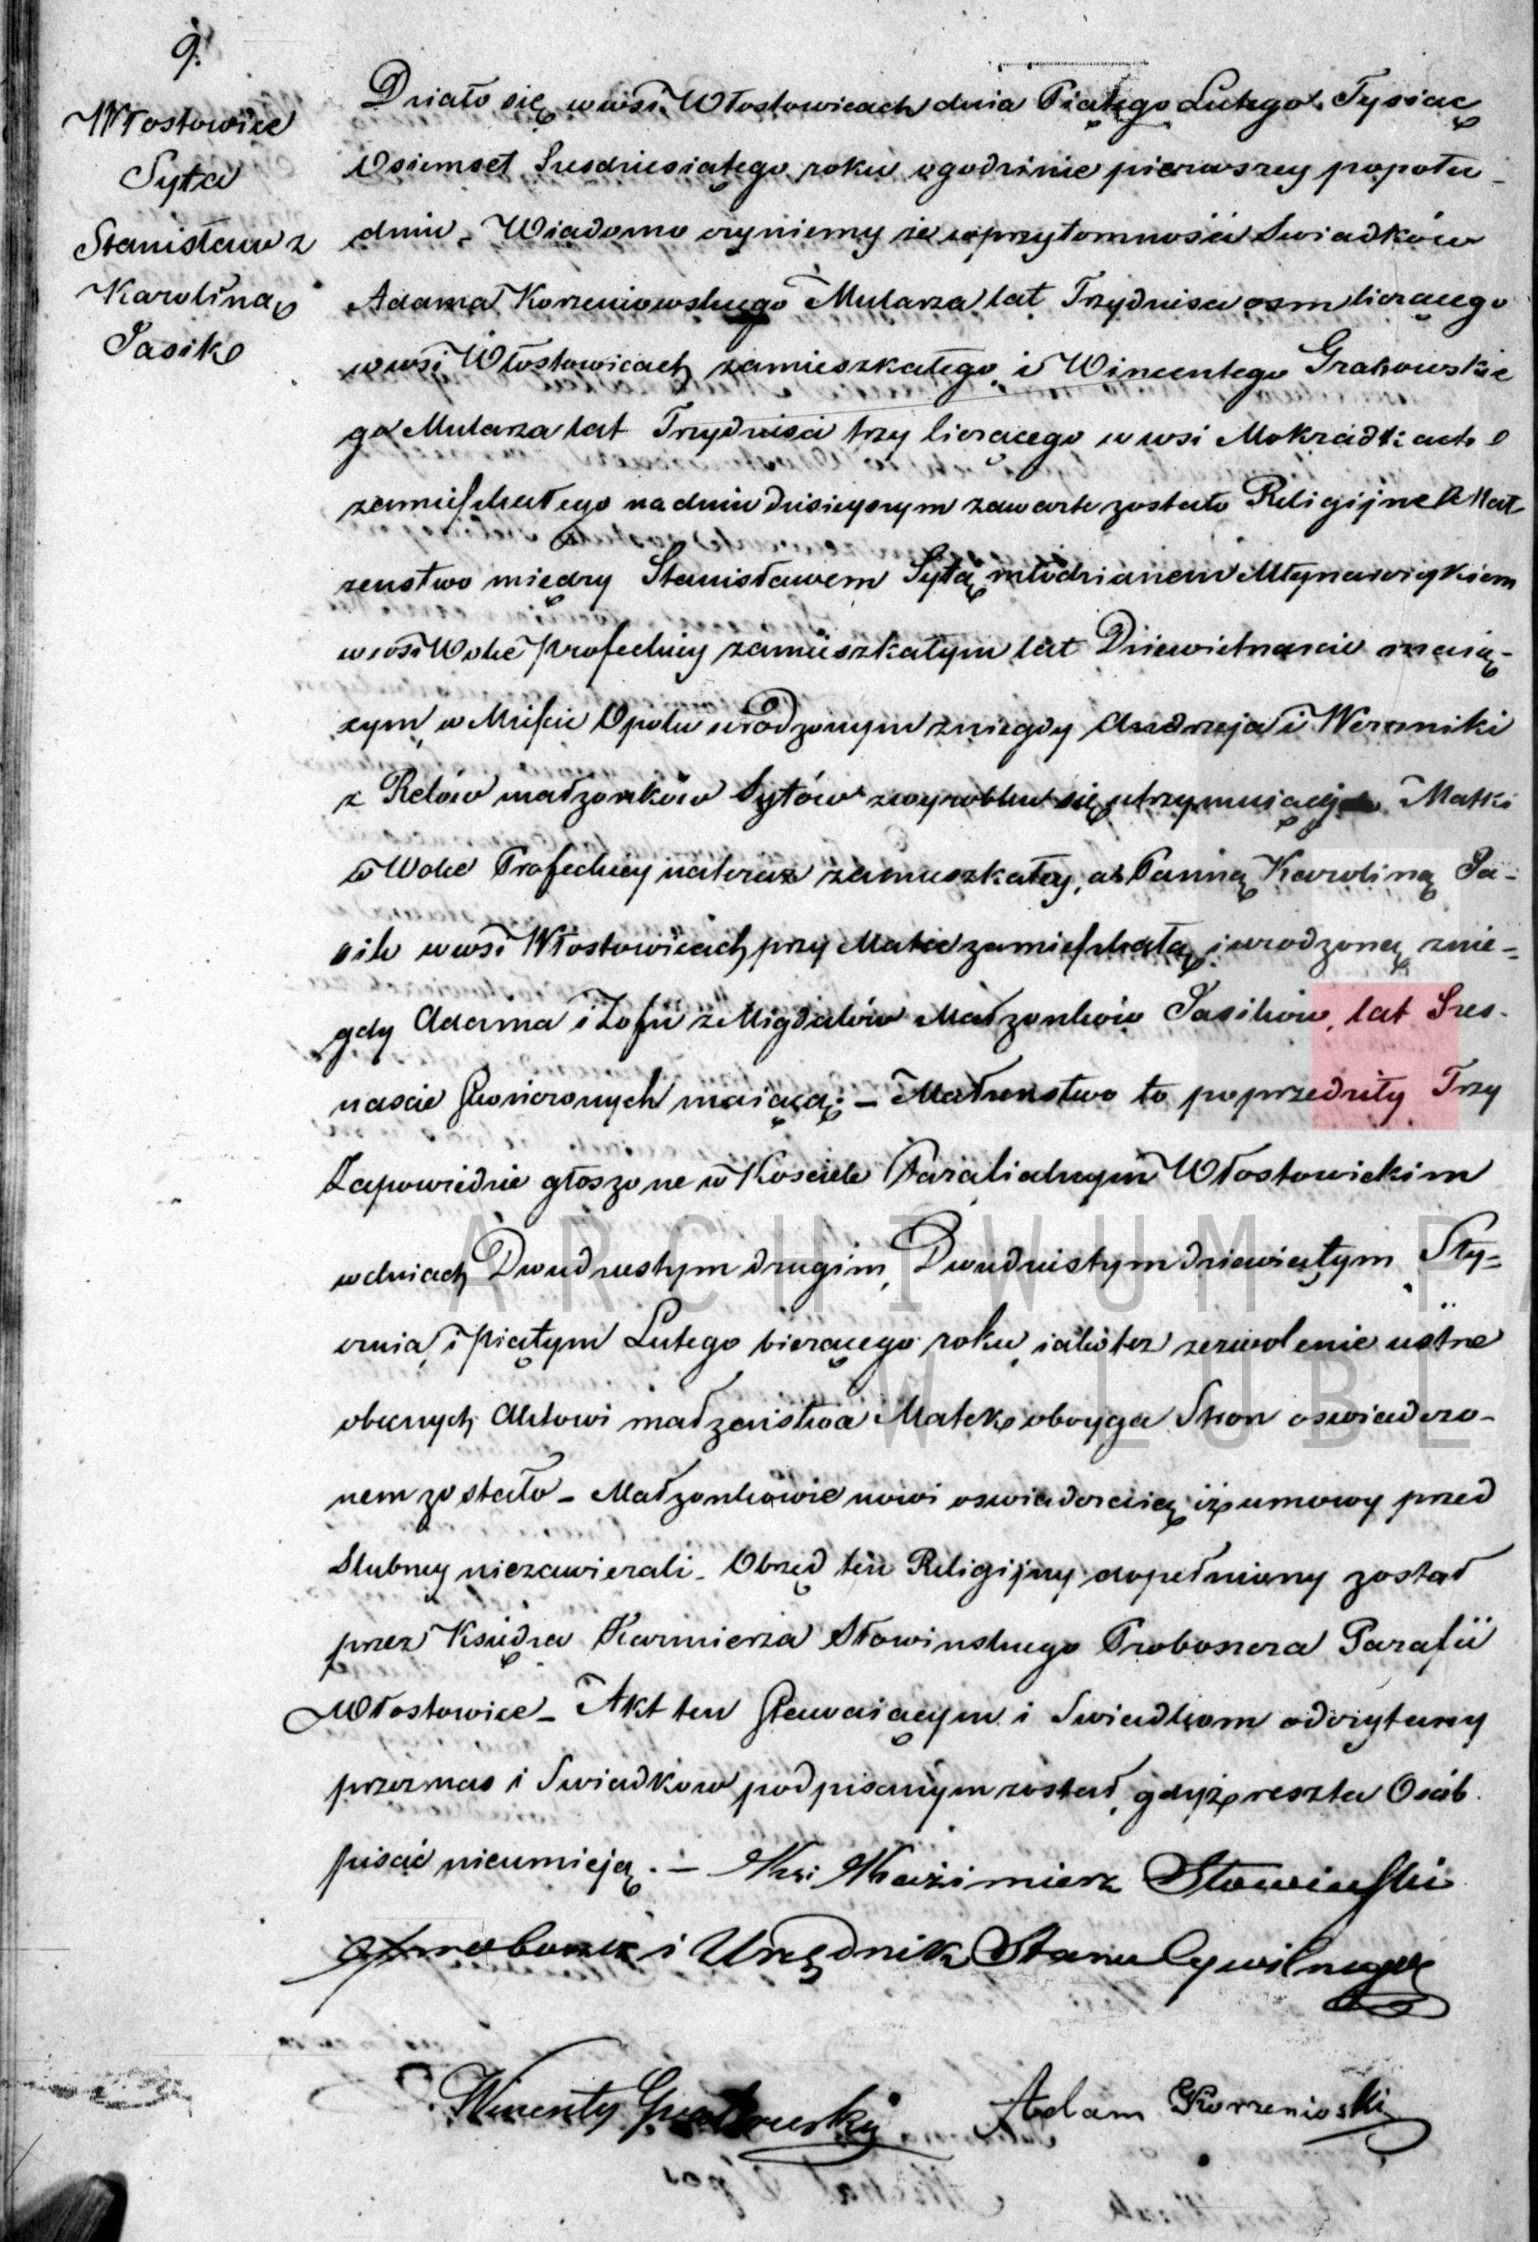 9.
Włostowice
Syta
Stanisław z
Karoliną
Pasik
Działo się w wsi Włostowicach dnia Piątego Lutego Tysiąc
Osiemset Szesdziesiątego roku o godzinie pierwszey popołu-
dniu. Wiadomo czyniemy że w przytomności Swiadków
Adama Korzeniowskiego Mularza lat Trzydzieści osm liczącego
w wsi Włostowicach zamieszkałego i Wincentego Grabowskie
go Mularza lat Trzydzieści trzy liczącego w wsi Mokradkach
zamieszkałego na dniu dzisieyszym zawarte zostało Religijne Mał
żenstwo między Stanisławem Sytą młodzianem Młynarczykiem
w wsi Wolce Profeckiey zamieszkałym lat Dziewietnascie maią-
cym w Mieście Opolu urodzonym z niegdy Andrzeja i Weroniki
z Retów małżonków Sytów z wyrobku się utrzymuiącej Matki
w Wolce Profeckiey na teraz zamieszkałey, a Panną Karoliną Pa-
sik w wsi Włostowicach przy Matce zamieszkałą i urodzoną z nie-
gdy Adama i Zofii z Migdałów Małżonków Pasików, lat Szes-
nascie skonczonych maiącą. – Małżenstwo to poprzedziły Trzy
Zapowiedzie głoszone w Kosciele Parafialnym Włostowickim
w dniach Dwudziestym drugim, Dwudziestym dziewiątym Sty-
cznia, i piątym Lutego bieżącego roku, iako też zezwolenie ustne
obecnych Aktowi małżeństwa Matek oboyga Stron oswiadczo-
nem zostało – Małżonkowie nowi oswiadczaią iż umowy przed
Slubney niezawierali. Obrzęd ten Religijny dopełniony został
przez Księdza Kazimierza Słowinskiego Proboszcza Parafii
Włostowice – Akt ten Stawaiącym i Swiadkom odczytany
przez nas i Swiadków podpisanym został, gdyż reszta Osób
pisać nieumieją. – Ksi Kazimierz Słowiński
proboszcz i Urzędnik Stanu Cywilnego
Wincenty Grabowski Adam Korzenioski
ARCHIWUM PA
W LUBL